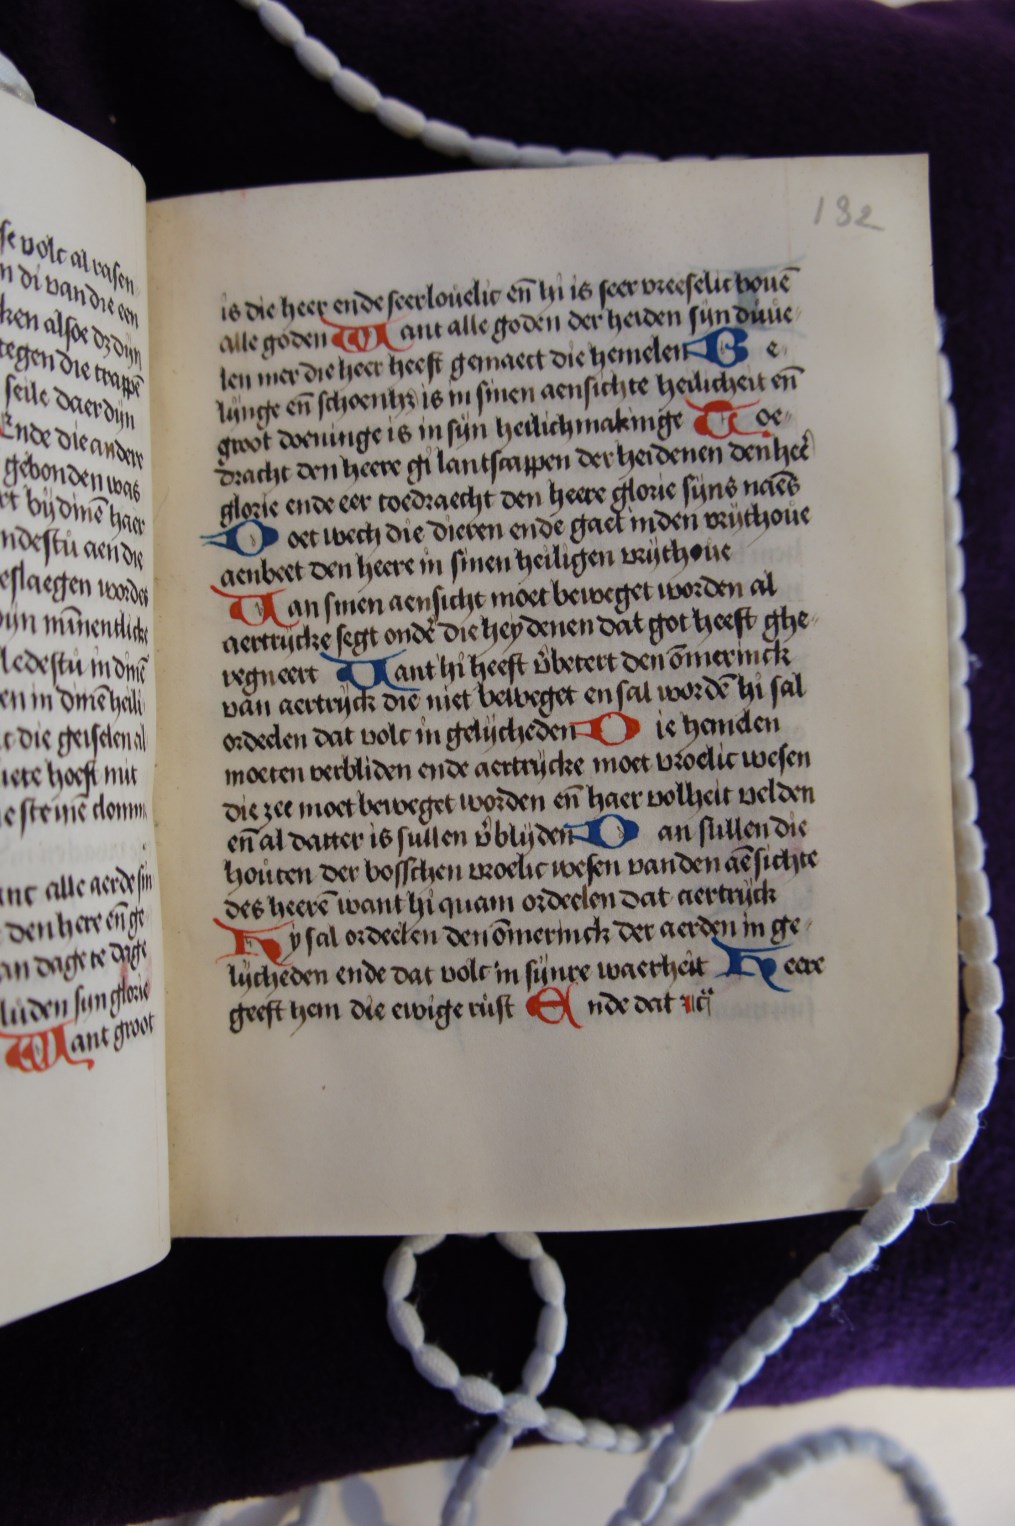 se volc al rasen
n di van die een
ken alsoe dz dijn
tegen die trappē
seile daer dijn
Ende die andere
gebonden was
rt bij dinē haer
ndestu aen die
eslaegen wordes
dijn mīnentlicke
ledestu in dinē
en in dinē heili
t die geiselen al
hoeft mit
e steinē
ant alle aerde sin
den here eñ ge
an dage te dage
luden sijn glorie
Want groot
182
is die heer ende seer louelic eñ hi is seer vreeselic bouē
alle goden Want alle goden der heiden sijn duue
len mer die heer heeft gemaect die hemelen Be
lijnge eñ schoenhz is in sinen aensichte heilicheit eñ
groot doeninge is in sijn heilichmakinge Toe
dracht den heere gi lantscappen der heidenen den heē
glorie ende eer toedraecht den heere glorie sijns naēs
Doet wech die dieren ende gaet in den vrijthoue
aenbeet den heere in sinen heiligen vrijthoue
Van sinen aensicht moet beweget worden al
aertrijcke segt ondē die heydenen dat got heeft ghe
regneert Want hi heeft v̄betert den ōmerinck
van aertrijck die niet beweget en sal wordē hi sal
ordelen dat volc in gelijcheden Die hemelen
moeten verbliden ende aertrijcke moet vroelic wesen
die zee moet beweget worden eñ haer volheit velden
eñ al datter is sullen v̄blijden Dan sullen die
houten der bosschen vroelic wesen van den aēsichte
des heerē want hi quam ordeelen dat aertrijck
Hy sal ordeelen den ōmerinck der aerden in ge
lijcheden ende dat volc in sijnre waerheit Heere
geeft hem die ewige rust Ende dat